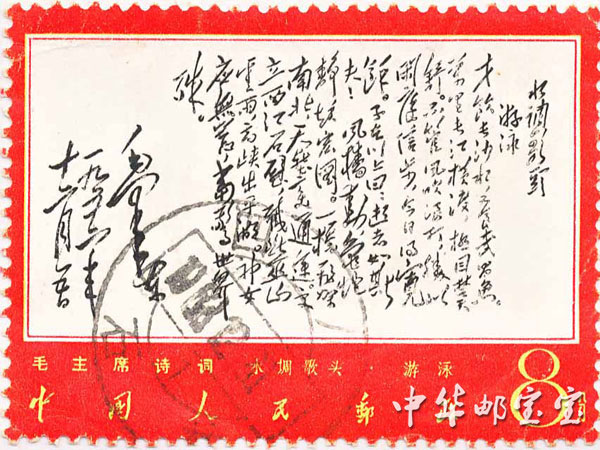 水调歌头
游泳
才饮长沙水，又食武昌鱼。
万里长江横渡，极目楚天
舒。不管风吹浪打，胜似
闲庭信步，今日得宽
馀。子在川上曰：逝者如斯
夫！风樯动，龟蛇
静，起宏图。一桥飞架
南北，天堑变通途。更
立西江石壁，截断巫山
云雨，高峡出平湖。神女
应无恙，当惊世界
殊。
毛泽东
一九五六年
十二月五日
毛主席诗词 水调歌头·游泳
中国人民邮
8分
中华邮宝宝